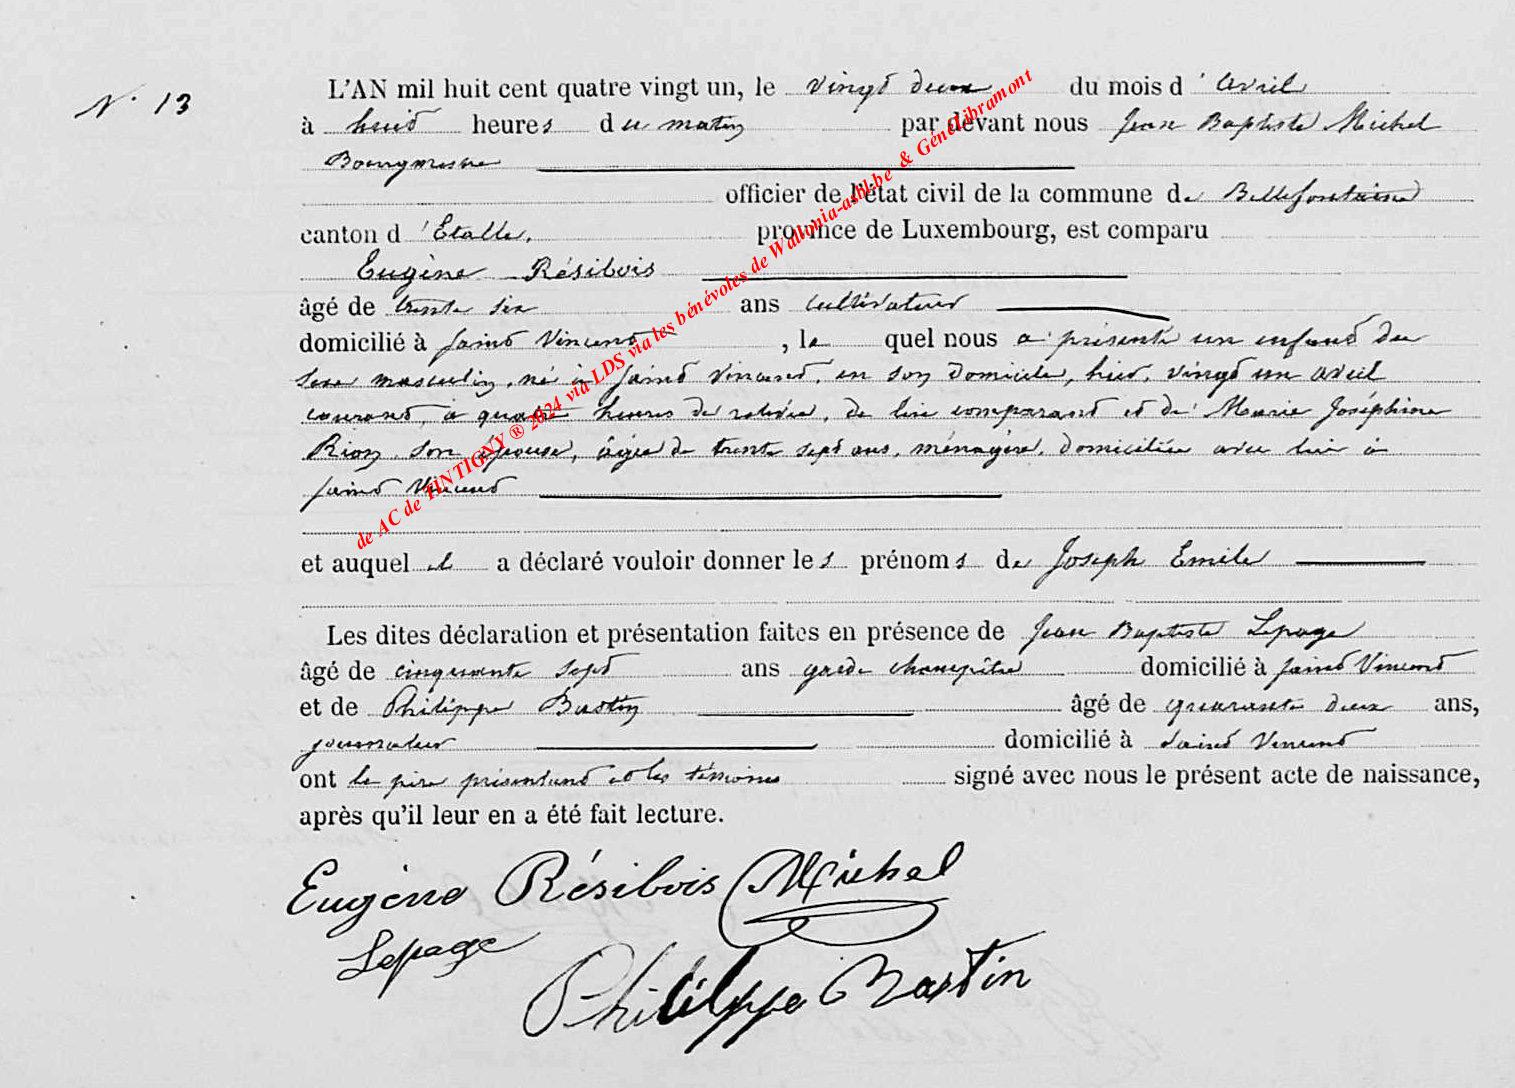 N° 13
L'AN mil huit cent quatre vingt un, le vingt deux du mois d'avril
à huit heures du matin par devant nous Jean Baptiste Michel
Bourgmestre
officier de l'état civil de la commune de Bellefontaine
canton d'Etalle, province de Luxembourg, est comparu
Eugène Résibois
âgé de trente six ans cultivateur
domicilié à Saint Vincent, le quel nous a présenté un enfant du
sexe masculin, né à Saint Vincent, en son domicile, hier, vingt un avril
courant, à quatre heures de relevée, de lui comparant et de Marie Joséphine
Rion son épouse, âgée de trente sept ans, ménagère, domiciliée avec lui à
Saint Vincent
et auquel il a déclaré vouloir donner les prénoms de Joseph Emile
Les dites déclaration et présentation faites en présence de Jean Baptiste Lepage
âgé de cinquante sept ans garde champêtre domicilié à Saint Vincent
et de Philippe Bastin âgé de quarante deux ans,
journalier domicilié à Saint Vincent
ont le père présentant et les témoins signé avec nous le présent acte de naissance,
après qu'il leur en a été fait lecture.
Eugène Résibois Michel
Lepage
Philippe Bastin
de AC de TINTIGNY ® 2024 via LDS via les bénévoles de Wallonia-asbl.be & Génélibramont